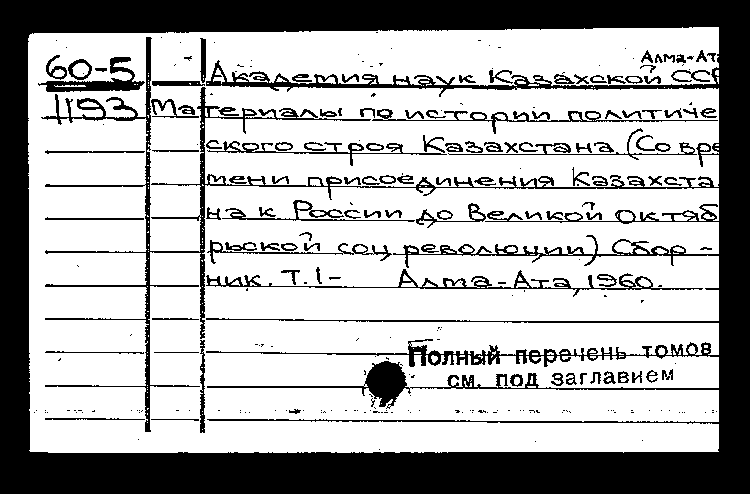 Алма-Ата
60-5 Академия наук Казахской ССР
1193 Материалы по истории политиче
ского строя Казахстана. (Со вре
мени присоединения Казахста
на к России до Великой Октяб
рьской соц. революции) Сбор -
ник. Т. 1- Алма-Ата, 1960.
Полный перечень томов
см. под заглавием